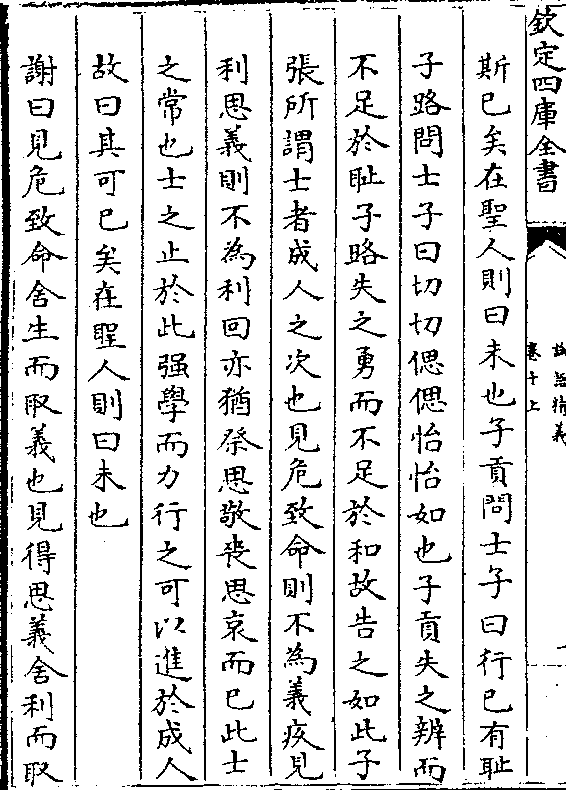 欽定四庫全書
論語精義
卷十上
斯已矣在聖人則曰未也子貢問士子曰行已有耻
子路問士子曰切切偲偲怡怡如也子貢失之辨而
不足於耻子路失之勇而不足於和故告之如此子
張所謂士者成人之次也見危致命則不為義疚見
利思義則不為利回亦猶祭思敬喪思哀而已此士
之常也士之止於此强學而力行之可以進於成人
故曰其可已矣在聖人則曰未也
謝曰見危致命舍生而取義也見得思義舍利而取